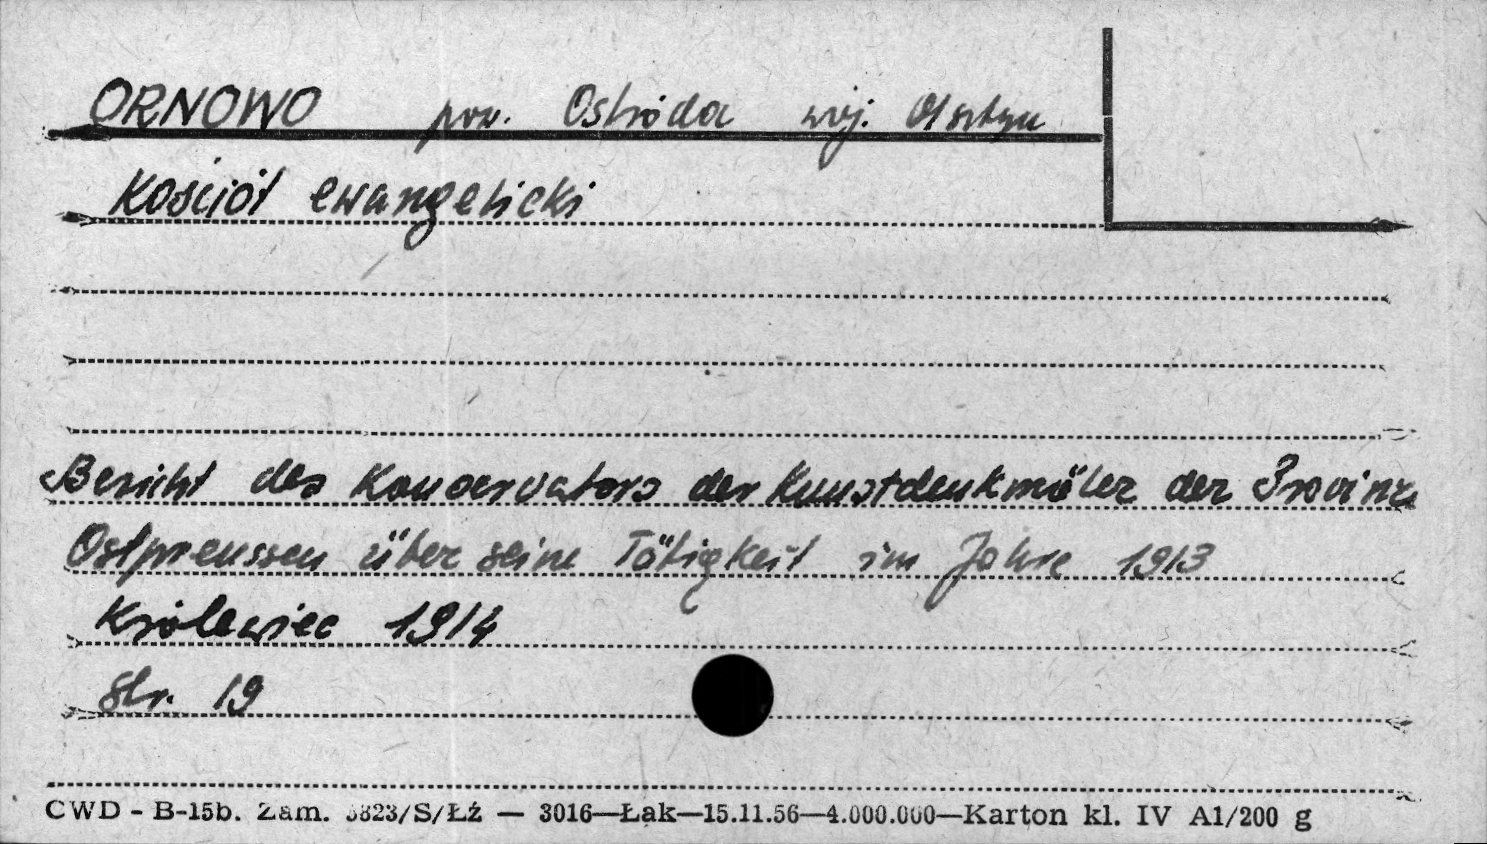 ORNOWO pow. Ostróda woj. Olsztyn
Kościół ewangelicki
Bericht des Konservators der Kunstdenkmäler der Provinz
Ostpreussen über seine Tätigkeit im Jahre 1913
Królewiec 1914
str. 19
CWD - B-15b. Zam. 5823/S/Łź — 3016—Łąk—15.11.56—4.000.000—Karton kl. IV A1/200 g